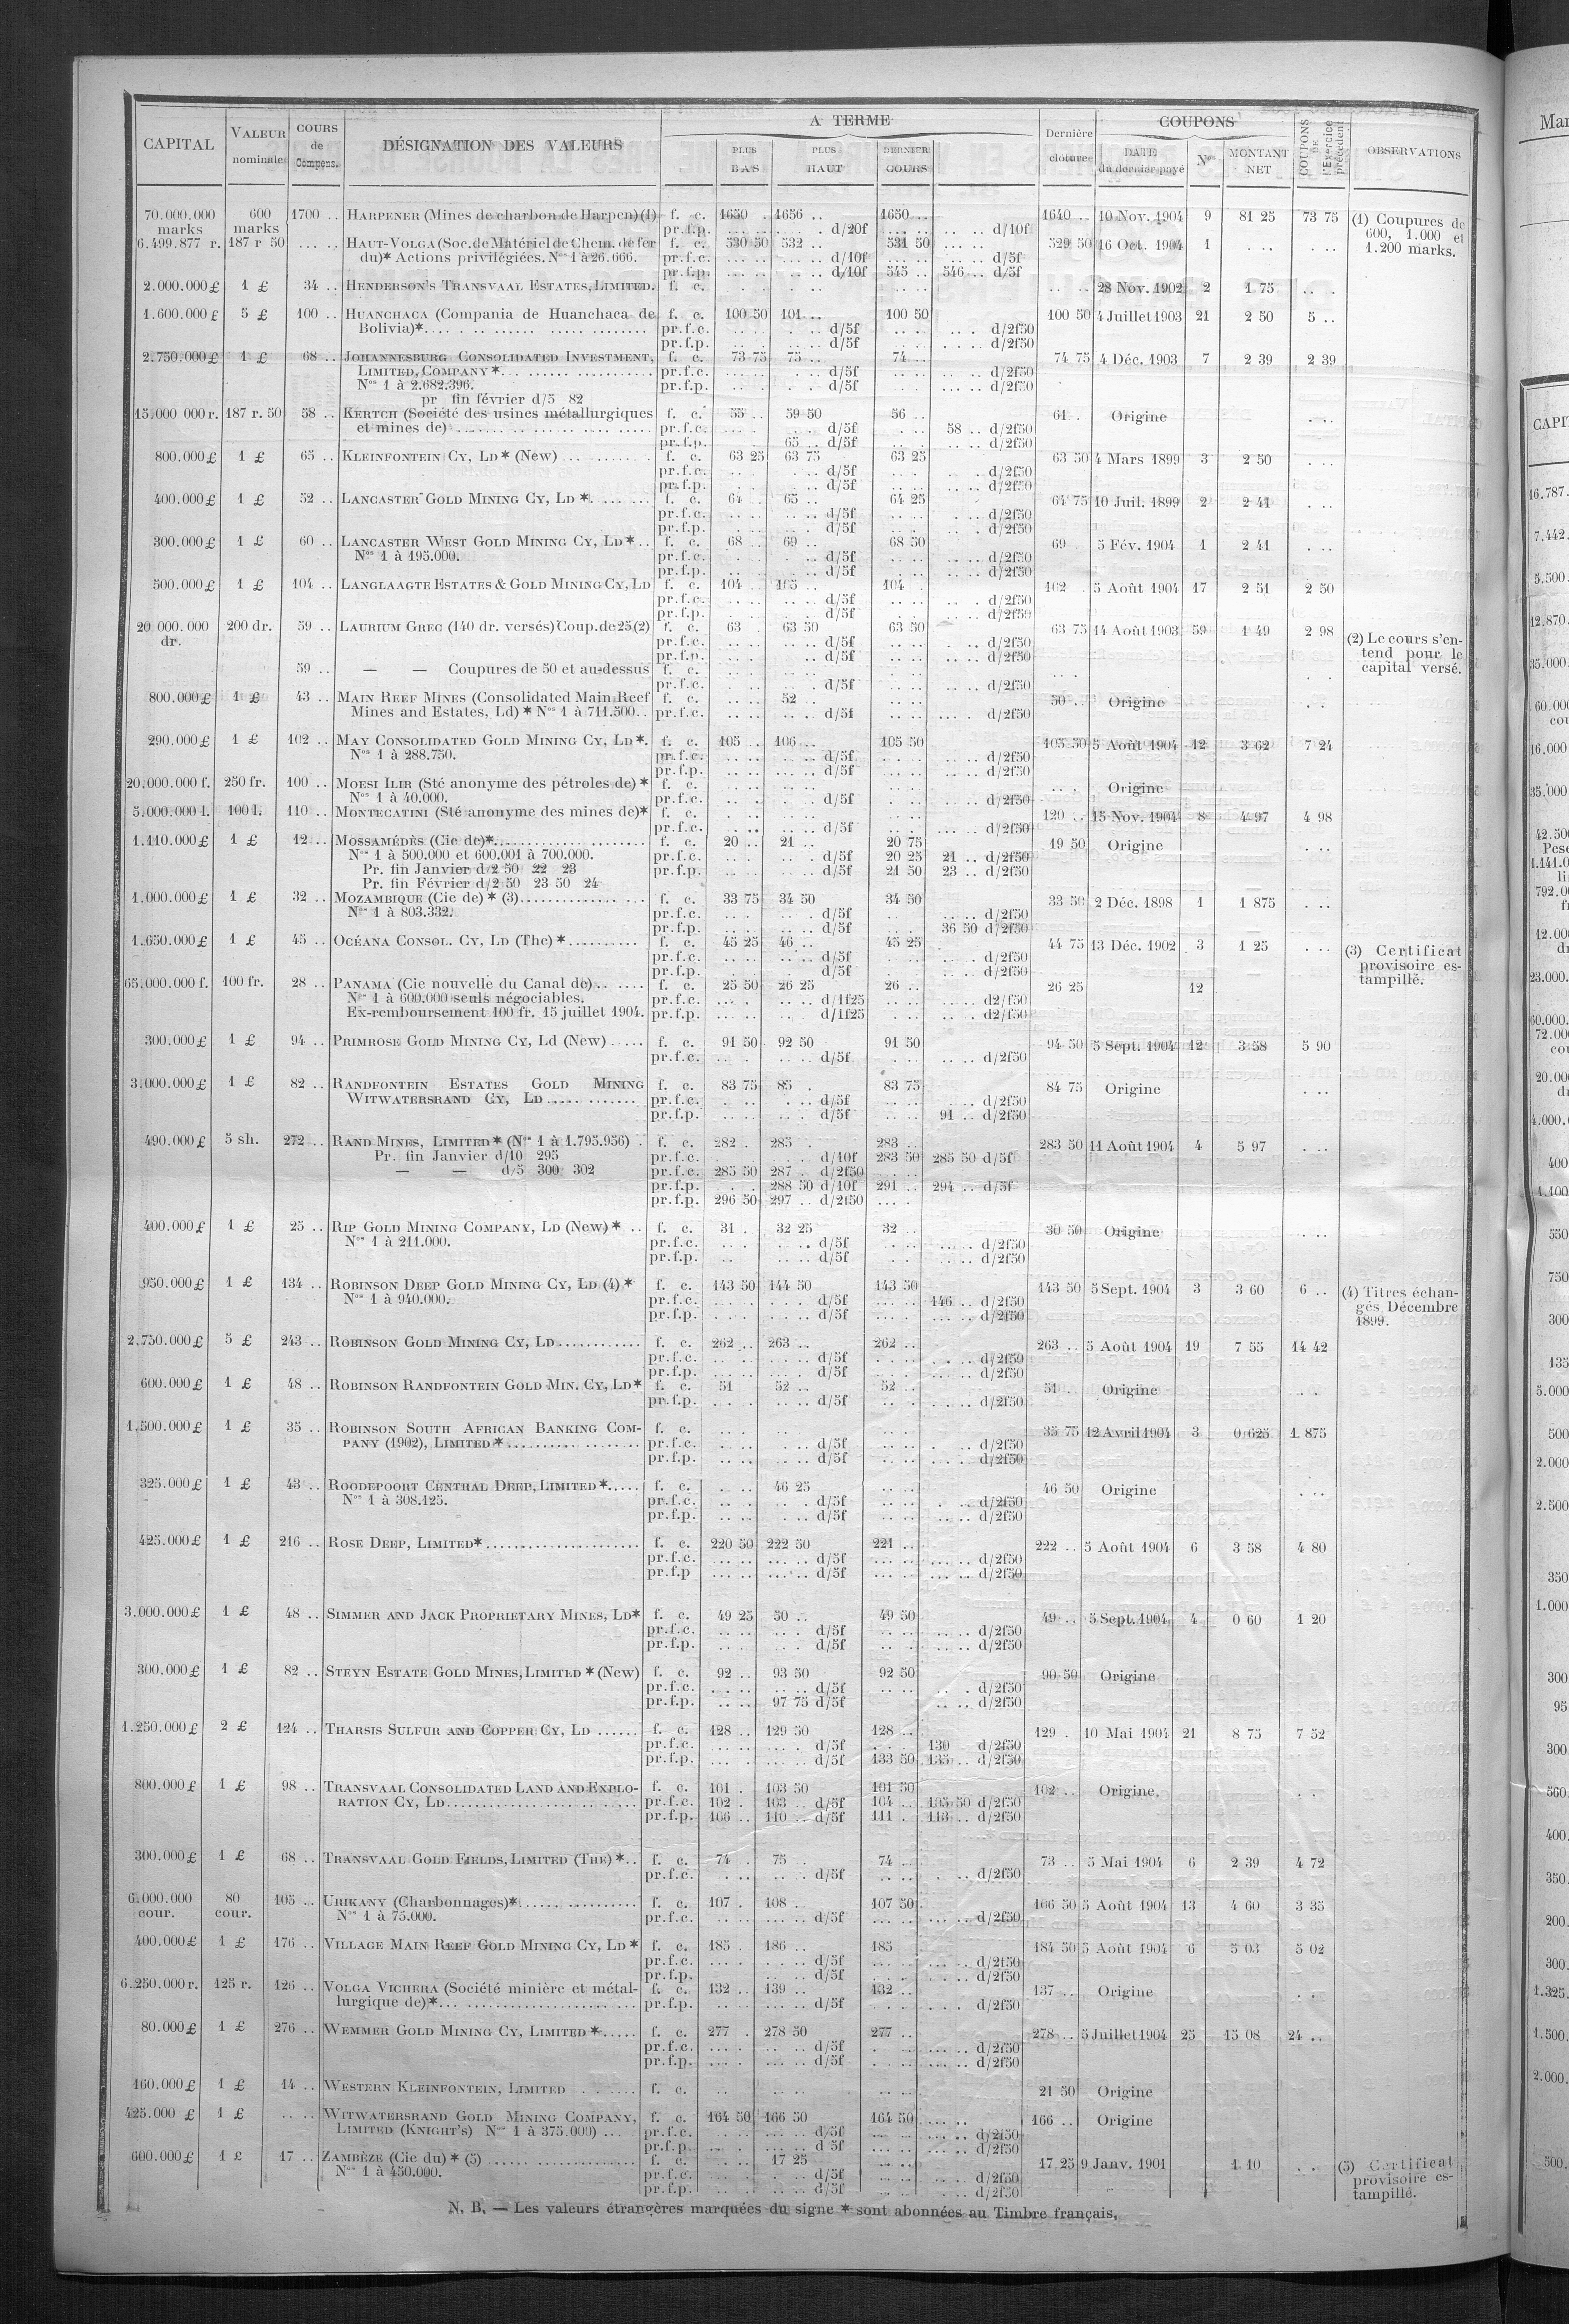 CAPITAL | VALEUR nominale | COURS de Compens. | DÉSIGNATION DES VALEURS | A TERME | PLUS BAS | PLUS HAUT | DERNIER COURS | Dernière clôture | COUPONS | DATE du dernier payé | Nos | MONTANT NET | COUPONS DE l'Exercice précédent | OBSERVATIONS
70.000.000 600 1700 .. HARPENER (Mines de charbon de Harpen) (1) f. c. 1650 . 1656 .. 1650 .. 1640 .. 10 Nov. 1904 9 81 25 73 75 (1) Coupures de
marks marks pr.f.p. d/20f d/10f 600, 1.000 et
6.499.877 r. 187 r 50 HAUT-VOLGA (Soc. de Matériel de Chem. de fer f. c. 530 50 532 .. 531 50 529 50 16 Oct. 1904 1 1.200 marks.
du)* Actions privilégiées. Nos 1 à 26.666. pr.f.c. d/10f d/5f
pr.f.p. d/10f 545 .. 546 .. d/5f
2.000.000 £ 1 £ 34 .. HENDERSON'S TRANSVAAL ESTATES, LIMITED. f. c. 28 Nov. 1902 2 1 75
1.600.000 £ 5 £ 100 .. HUANCHACA (Compania de Huanchaca de f. c. 100 50 101 .. 100 50 100 50 4 Juillet 1903 21 2 50 5 ..
Bolivia)* pr.f.c. d/5f d/2f50
pr.f.p. d/5f d/2f50
2.750.000 £ 1 £ 68 .. JOHANNESBURG CONSOLIDATED INVESTMENT, f. c. 73 75 75 .. 74 .. 74 75 4 Déc. 1903 7 2 39 2 39
LIMITED, COMPANY * pr.f.c. d/5f d/2f50
Nos 1 à 2.682.396. pr.f.p. d/5f d/2f50
pr fin février d/5 82
15.000 000 r. 187 r. 50 58 .. KERTCH (Société des usines métallurgiques f. c. 55 .. 59 50 56 .. 61 . Origine
et mines de) pr.f.c. d/5f 58 .. d/2f50
pr.f.p. 65 .. d/5f d/2f50
800.000 £ 1 £ 65 .. KLEINFONTEIN CY, LD * (New) f. c. 63 25 63 75 63 25 63 50 4 Mars 1899 3 2 50
pr.f.c. d/5f d/2f50
pr.f.p. d/5f d/2f50
400.000 £ 1 £ 52 .. LANCASTER GOLD MINING CY, LD * f. c. 64 .. 65 .. 64 25 64 75 10 Juil. 1899 2 2 41
pr.f.c. d/5f d/2f50
pr.f.p. d/5f d/2f50
300.000 £ 1 £ 60 .. LANCASTER WEST GOLD MINING CY, LD * f. c. 68 .. 69 .. 68 50 69 5 Fév. 1904 1 2 41
Nos 1 à 195.000. pr.f.c. d/5f d/2f50
pr.f.p. d/5f d/2f50
500.000 £ 1 £ 104 .. LANGLAAGTE ESTATES & GOLD MINING CY, LD f. c. 104 .. 105 .. 104 . 102 . 5 Août 1904 17 2 51 2 50
pr.f.c. d/5f d/2f50
pr.f.p. d/5f d/2f50
20 000.000 200 dr. 59 .. LAURIUM GREC (140 dr. versés) Coup. de 25 (2) f. c. 63 . 63 50 63 50 63 75 14 Août 1903 59 1 49 2 98 (2) Le cours s'en-
dr. pr.f.c. d/5f d/2f50 tend pour le
pr.f.p. d/5f d/2f50 capital versé.
59 .. — — Coupures de 50 et au-dessus f. c.
pr.f.c. d/5f d/2f50
800.000 £ 1 £ 43 .. MAIN REEF MINES (Consolidated Main Reef f. c. 52 .. 50 .. Origine
Mines and Estates, Ld) * Nos 1 à 711.500. pr.f.c. d/5f d/2f50
290.000 £ 1 £ 102 .. MAY CONSOLIDATED GOLD MINING CY, LD *. f. c. 105 .. 106 .. 105 50 105 50 5 Août 1904 12 3 62 7 24
Nos 1 à 288.750. pr.f.c. d/5f d/2f50
pr.f.p. d/5f d/2f50
20.000.000 f. 250 fr. 100 .. MOESI ILIR (Sté anonyme des pétroles de) * f. c. Origine
Nos 1 à 40.000. pr.f.c. d/5f d/2f50
5.000.000 l. 100 l. 110 .. MONTECATINI (Sté anonyme des mines de)* f. c. 120 .. 15 Nov. 1904 8 4 97 4 98
pr.f.c. d/5f d/2f50
1.110.000 £ 1 £ 12 .. MOSSAMÉDÈS (Cie de)* f. c. 20 .. 21 .. 20 75 19 50 Origine
Nos 1 à 500.000 et 600.001 à 700.000. pr.f.c. d/5f 20 25 21 .. d/2f50
Pr. fin Janvier d/2 50 22 23 pr.f.p. d/5f 21 50 23 .. d/2f50
Pr. fin Février d/2 50 23 50 24
1.000.000 £ 1 £ 32 .. MOZAMBIQUE (Cie de) * (3) f. c. 33 75 34 50 34 50 33 50 2 Déc. 1898 1 1 875
Nos 1 à 803.332. pr.f.c. d/5f d/2f50
pr.f.p. d/5f 36 50 d/2f50
1.650.000 £ 1 £ 45 .. OCÉANA CONSOL. CY, LD (The) * f. c. 45 25 46 .. 45 25 44 75 13 Déc. 1902 3 1 25 (3) Certificat
pr.f.c. d/5f d/2f50 provisoire es-
pr.f.p. d/5f d/2f50 tampillé.
65.000.000 f. 100 fr. 28 .. PANAMA (Cie nouvelle du Canal de) f. c. 25 50 26 25 26 .. 26 25 12
Nos 1 à 600.000 seuls négociables. pr.f.c. d/1f25 d2/f50
Ex-remboursement 100 fr. 15 juillet 1904. pr.f.p. d/1f25 d2/f50
300.000 £ 1 £ 94 .. PRIMROSE GOLD MINING CY, Ld (New) f. c. 91 50 92 50 91 50 94 50 5 Sept. 1904 12 3 58 5 90
pr.f.c. d/5f d/2f50
3.000.000 £ 1 £ 82 .. RANDFONTEIN ESTATES GOLD MINING f. c. 83 75 85 . 83 75 84 75 Origine
WITWATERSRAND CY, LD pr.f.c. d/5f d/2f50
pr.f.p. d/5f 91 .. d/2f50
490.000 £ 5 sh. 272 .. RAND MINES, LIMITED * (Nos 1 à 1.795.956) f. c. 282 . 285 . 283 .. 283 50 11 Août 1904 4 5 97
Pr. fin Janvier d/10 295 pr.f.c. d/10f 283 50 285 50 d/5f
— — d/5 300 302 pr.f.c. 285 50 287 . d/2f50
pr.f.p. 288 50 d/10f 291 .. 294 .. d/5f
pr.f.p. 296 50 297 .. d/2f50
400.000 £ 1 £ 25 .. RIP GOLD MINING COMPANY, LD (New) * f. c. 31 . 32 25 32 .. 30 50 Origine
Nos 1 à 211.000. pr.f.c. d/5f d/2f50
pr.f.p. d/5f d/2f50
950.000 £ 1 £ 134 .. ROBINSON DEEP GOLD MINING CY, LD (4) * f. c. 143 50 144 50 143 50 143 50 5 Sept. 1904 3 3 60 6 .. (4) Titres échan-
Nos 1 à 940.000. pr.f.c. d/5f 146 .. d/2f50 gés Décembre
pr.f.p. d/5f d/2f50 1899.
2.750.000 £ 5 £ 243 .. ROBINSON GOLD MINING CY, LD f. c. 262 .. 263 .. 262 .. 263 .. 5 Août 1904 19 7 55 14 42
pr.f.c. d/5f d/2f50
pr.f.p. d/5f d/2f50
600.000 £ 1 £ 48 .. ROBINSON RANDFONTEIN GOLD MIN. CY, LD* f. c. 51 52 .. 52 .. 51 .. Origine
pr.f.p. d/5f d/2f50
1.500.000 £ 1 £ 35 .. ROBINSON SOUTH AFRICAN BANKING COM- f. c. 35 75 12 Avril 1904 3 0 625 1 875
PANY (1902), LIMITED * pr.f.c. d/5f d/2f50
pr.f.p. d/5f d/2f50
325.000 £ 1 £ 43 .. ROODEPOORT CENTRAL DEEP, LIMITED * f. c. 46 25 46 50 Origine
Nos 1 à 308.125. pr.f.c. d/5f d/2f50
pr.f.p. d/5f d/2f50
425.000 £ 1 £ 216 .. ROSE DEEP, LIMITED* f. c. 220 50 222 50 221 .. 222 .. 5 Août 1904 6 3 58 4 80
pr.f.c. d/5f d/2f50
pr.f.p d/5f d/2f50
3.000.000 £ 1 £ 48 .. SIMMER AND JACK PROPRIETARY MINES, LD* f. c. 49 25 50 .. 49 50 49 .. 5 Sept. 1904 4 0 60 1 20
pr.f.c. d/5f d/2f50
pr.f.p. d/5f d/2f50
300.000 £ 1 £ 82 .. STEYN ESTATE GOLD MINES, LIMITED * (New) f. c. 92 .. 93 50 92 50 90 50 Origine
pr.f.c. d/5f d/2f50
pr.f.p. 97 75 d/5f d/2f50
1.250.000 £ 2 £ 124 .. THARSIS SULFUR AND COPPER CY, LD f. c. 128 .. 129 50 128 .. 129 . 10 Mai 1904 21 8 75 7 52
pr.f.c. d/5f 130 d/2f50
pr.f.p. d/5f 133 50 135 .. d/2f50
800.000 £ 1 £ 98 .. TRANSVAAL CONSOLIDATED LAND AND EXPLO- f. c. 101 . 103 50 101 50 102 .. Origine
RATION CY, LD pr.f.c. 102 . 103 .. d/5f 104 .. 105 50 d/2f50
pr.f.p. 106 .. 110 .. d/5f 111 . 113 .. d/2f50
300.000 £ 1 £ 68 .. TRANSVAAL GOLD FIELDS, LIMITED (THE) * f. c. 74 . 75 . 74 .. 73 .. 5 Mai 1904 6 2 39 4 72
pr.f.c. d/5f d/2f50
6.000.000 80 105 .. URIKANY (Charbonnages)* f. c. 107 . 108 . 107 50 106 50 5 Août 1904 13 4 60 3 35
cour. cour. Nos 1 à 75.000. pr.f.c. d/5f d/2f50
400.000 £ 1 £ 176 .. VILLAGE MAIN REEF GOLD MINING CY, LD * f. c. 185 . 186 .. 185 184 50 5 Août 1904 6 5 03 5 02
pr.f.c. d/5f d/2f50
pr.f.p. d/5f d/2f50
6.250.000 r. 125 r. 126 .. VOLGA VICHERA (Société minière et métal- f. c. 132 .. 139 .. 132 .. 137 .. Origine
lurgique de)* pr.f.p d/5f d/2f50
80.000 £ 1 £ 276 .. WEMMER GOLD MINING CY, LIMITED * f. c. 277 . 278 50 277 .. 278 .. 5 Juillet 1904 25 15 08 24 ..
pr.f.c. d/5f d/2f50
pr.f.p. d/5f d/2f50
160.000 £ 1 £ 14 .. WESTERN KLEINFONTEIN, LIMITED f. c. 21 50 Origine
425.000 £ 1 £ WITWATERSRAND GOLD MINING COMPANY, f. c. 164 50 166 50 164 50 166 .. Origine
LIMITED (KNIGHT'S) Nos 1 à 375.000) pr.f.c. d/5f d/2f50
pr.f.p. d 5f d/2f50
600.000 £ 1 £ 17 .. ZAMBÈZE (Cie du) * (5) f. c. 17 25 17 25 9 Janv. 1901 1 10 (5) Certificat
Nos 1 à 450.000. pr.f.c. d/5f d/2f50 provisoire es-
pr.f.p. d/5f d/2f50 tampillé.
N. B. — Les valeurs étrangères marquées du signe * sont abonnées au Timbre français,